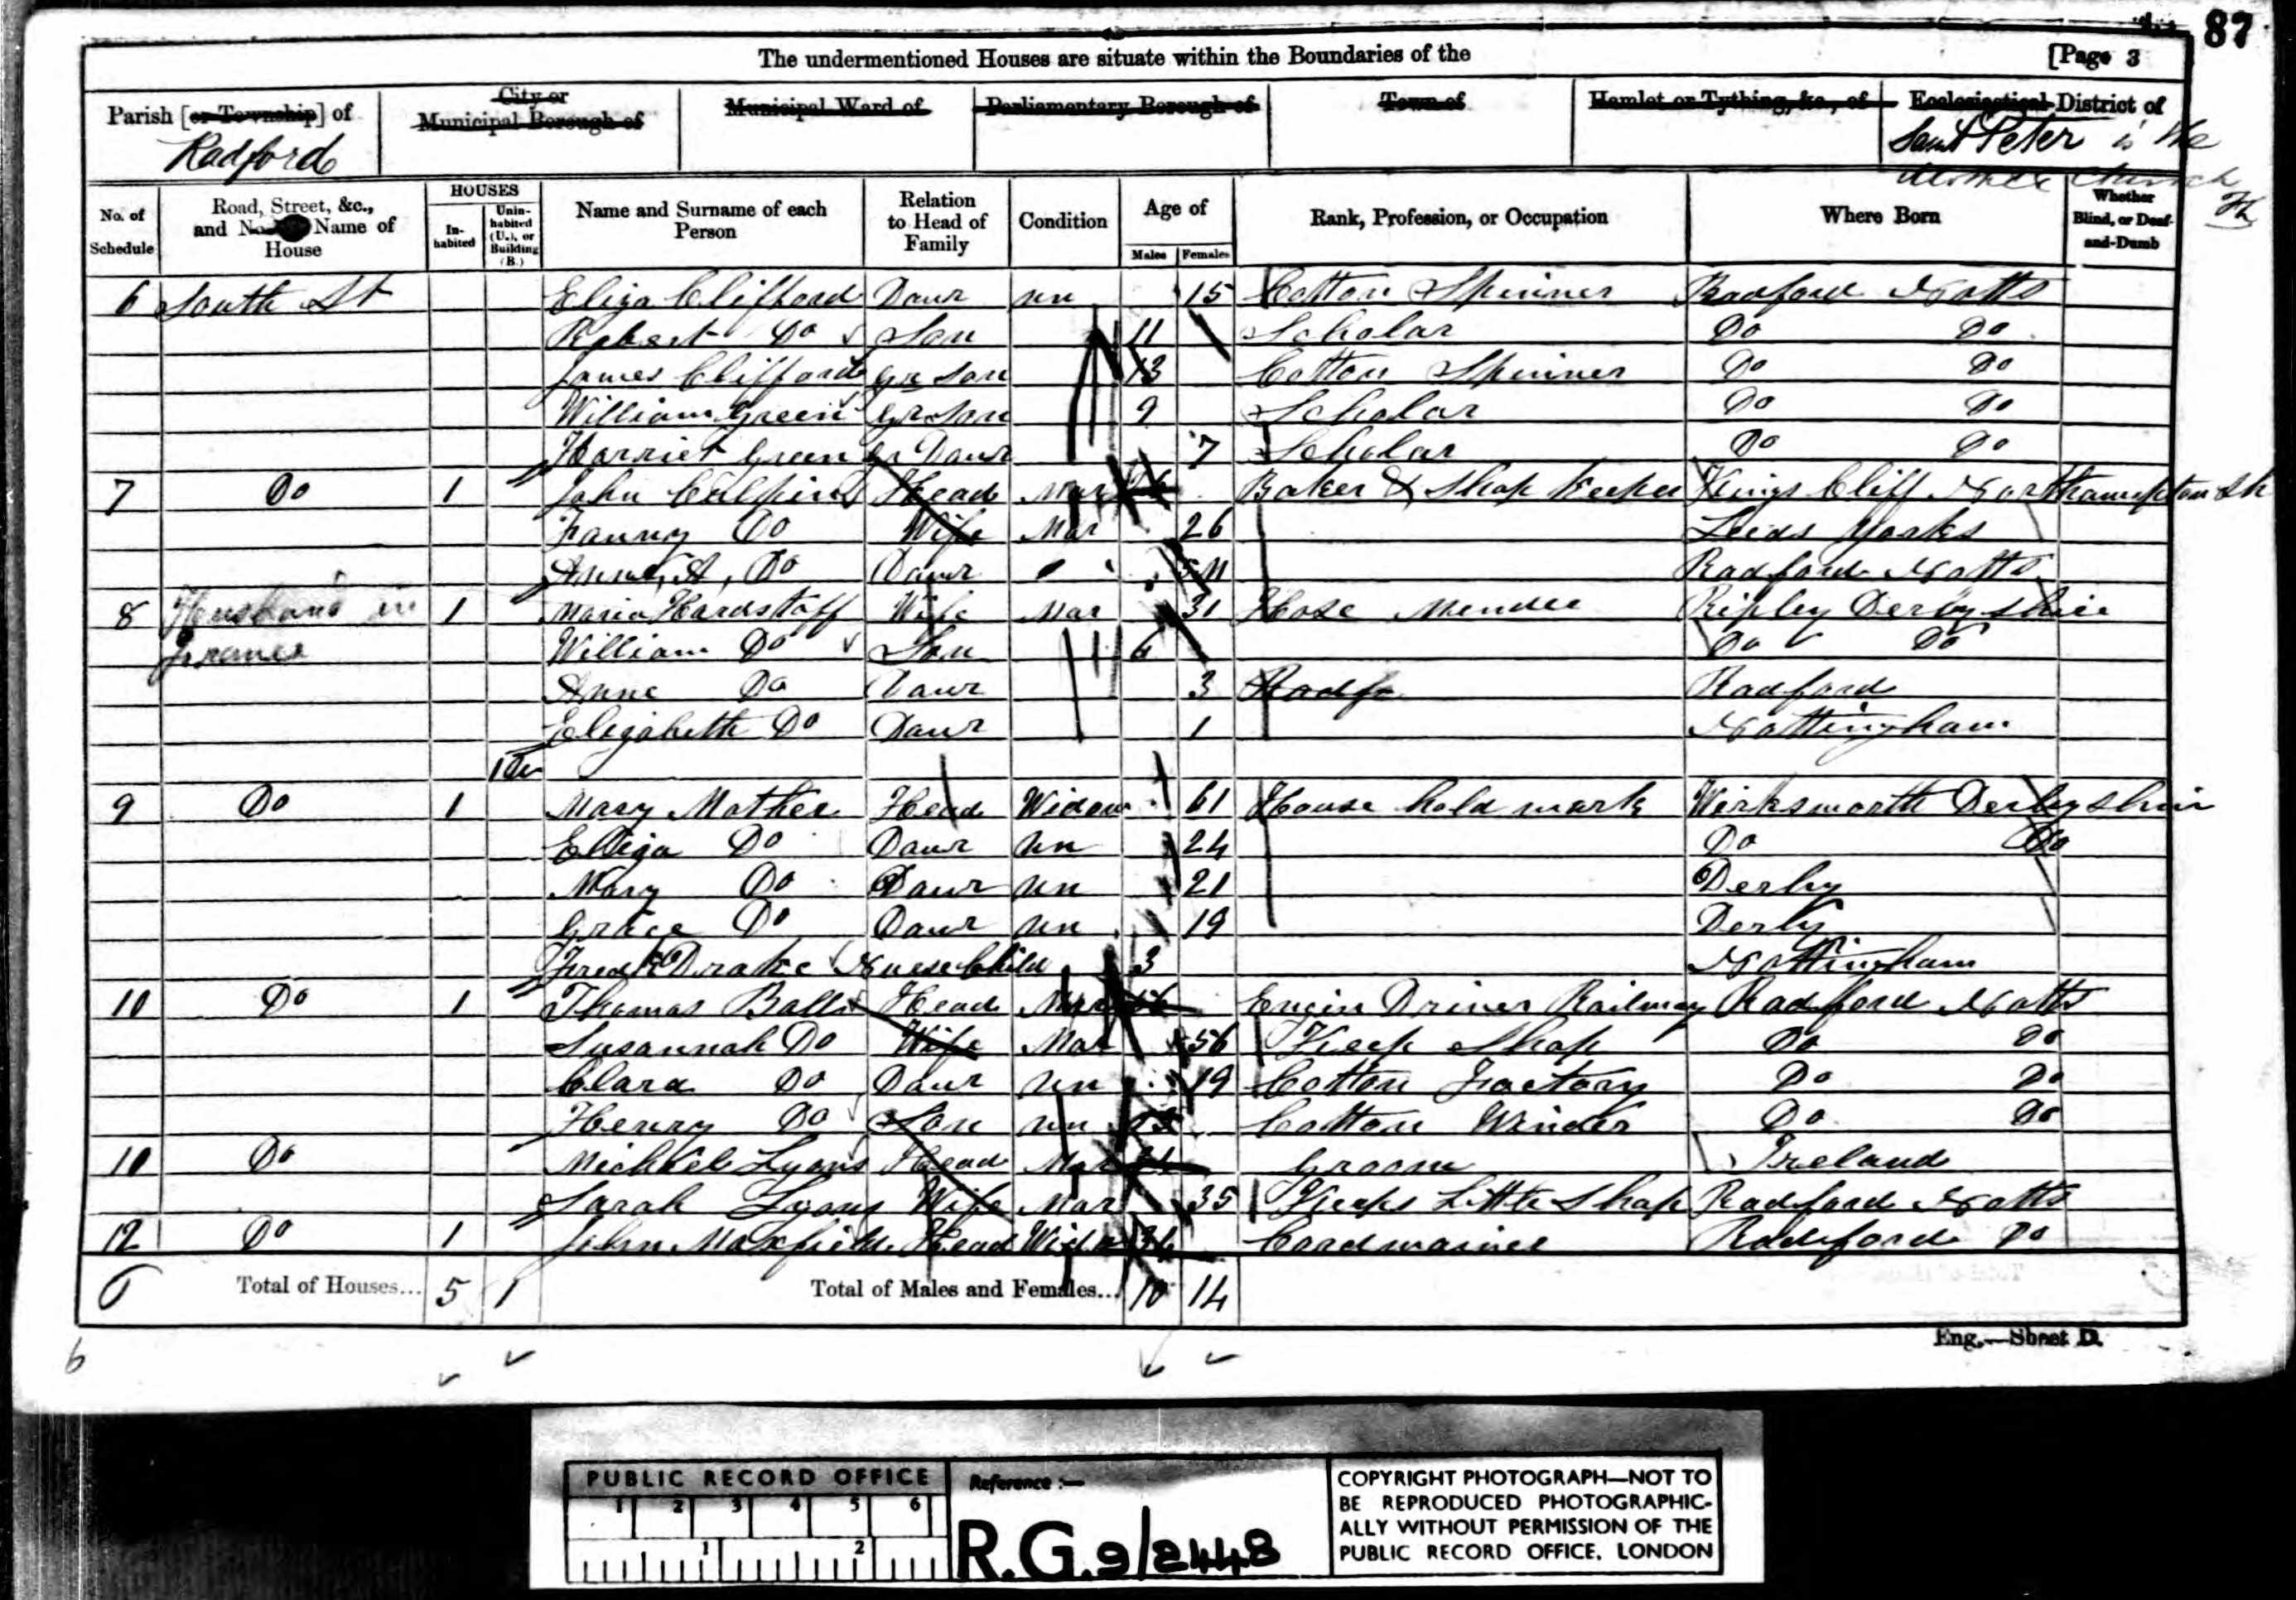 87
The undermentioned Houses are situate within the Boundaries of the [Page 3
Parish [or Township] of City or Municipal Borough of Municipal Ward of Parliamentary Borough of Town of Hamlet or Tything, &c., of Ecclesiastical District of
Radford Saint Peter is the
Mother Church
No. of Schedule Road, Street, &c., and No. Name of House HOUSES Inhabited Uninhabited (U.), or Building (B.) Name and Surname of each Person Relation to Head of Family Condition Age of Males Females Rank, Profession, or Occupation Where Born Whether Blind, or Deaf-and-Dumb
6 South St Eliza Clifford Daur un 15 Cotton Spinner Radford Notts
Robert Do Son 11 Scholar Do Do
James Clifford Gr Son 13 Cotton Spinner Do Do
William Green Gr Son 9 Scholar Do Do
Harriet Green Gr Daur 7 Scholar Do Do
7 Do 1 John Head Mar 26 Baker & Shop Keeper Kings Cliff Northampton Sh
Fanny Do Wife Mar 26 Leeds Yorks
Anne, A, Do Daur Radford Notts
8 Husband in 1 Maria Hardstaff Wife Mar 31 Hose Mender Ripley Derbyshire
France William Do Son 6 Do Do
Anne Do Daur 3 Radfo Radford
Elizabeth Do Daur 1 Nottingham
1 U
9 Do 1 Mary Mather Head Widow 61 House hold work Wirksworth Derbyshire
Elliza Do Daur un 24 Do Do
Mary Do Daur un 21 Derby
Grace Do Daur un 19 Derby
Fredk Drake Nurse Child 3 Nottingham
10 Do 1 Thomas Balls Head Mar 56 Engin Driver Railway Radford Notts
Susannah Do Wife Mar 56 Keep Shop Do Do
Clara Do Daur un 19 Cotton Factory Do Do
Henry Do Son un 15 Cotton Winder Do Do
11 Do Michael Lyons Head Mar Groom Ireland
Sarah Lyons Wife Mar 35 Keeps Little Shop Radford Notts
12 Do 1 John Maxfield Head Widr Cordwainer Radford Do
6 Total of Houses... 5 1 Total of Males and Females... 10 14
Eng.—Sheet D.
6
PUBLIC RECORD OFFICE
1 2 3 4 5 6
1 2
Reference :—
R.G. 9/2448
COPYRIGHT PHOTOGRAPH—NOT TO
BE REPRODUCED PHOTOGRAPHIC-
ALLY WITHOUT PERMISSION OF THE
PUBLIC RECORD OFFICE, LONDON